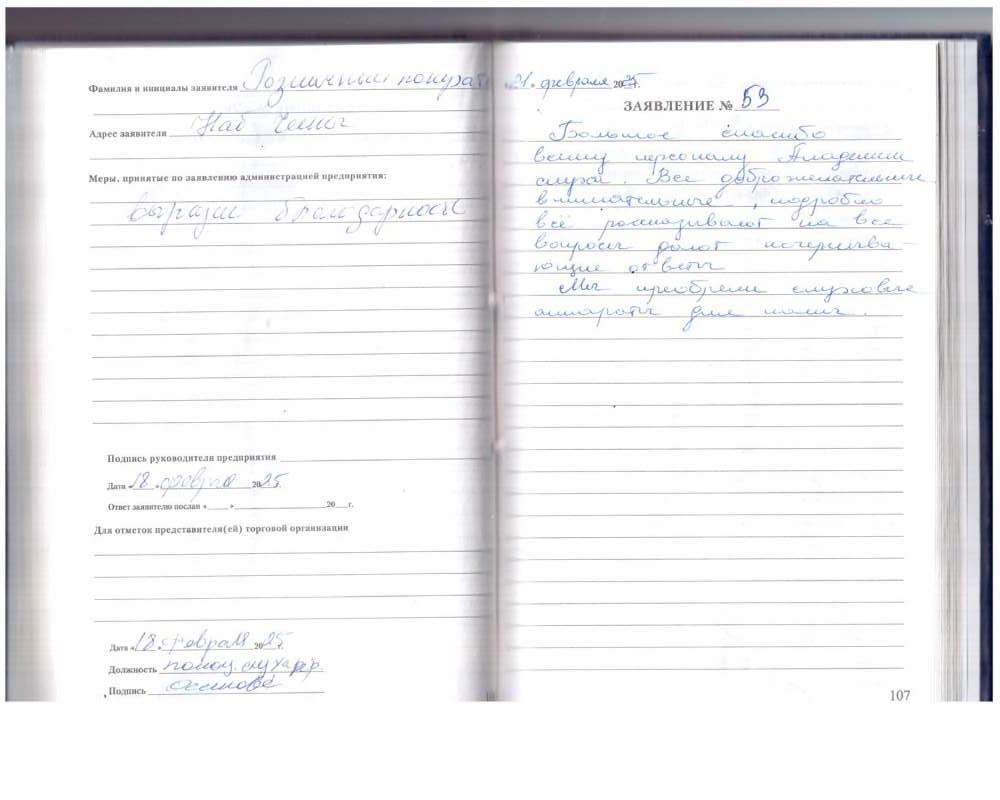 Фамилия и инициалы заявителя Розничный покупат
Адрес заявителя Наб Челны
Меры, принятые по заявлению администрацией предприятия:
выразить благодарность
Подпись руководителя предприятия
Дата «18» февраля 2025
Ответ заявителю послан «___» ___ 20__г.
Для отметок представителя(ей) торговой организации
Дата «18» февраля 2025г.
Должность помощ. слухар
Подпись Осипова
21» февраля 2025г.
ЗАЯВЛЕНИЕ № 53
Большое спасибо
всему персоналу Академии
слуха. Все доброжелательные
внимательные, подробно
всё рассказывают на все
вопросы дают исчерпыва-
ющие ответы
Мы приобрели слуховые
аппараты для мамы.
107